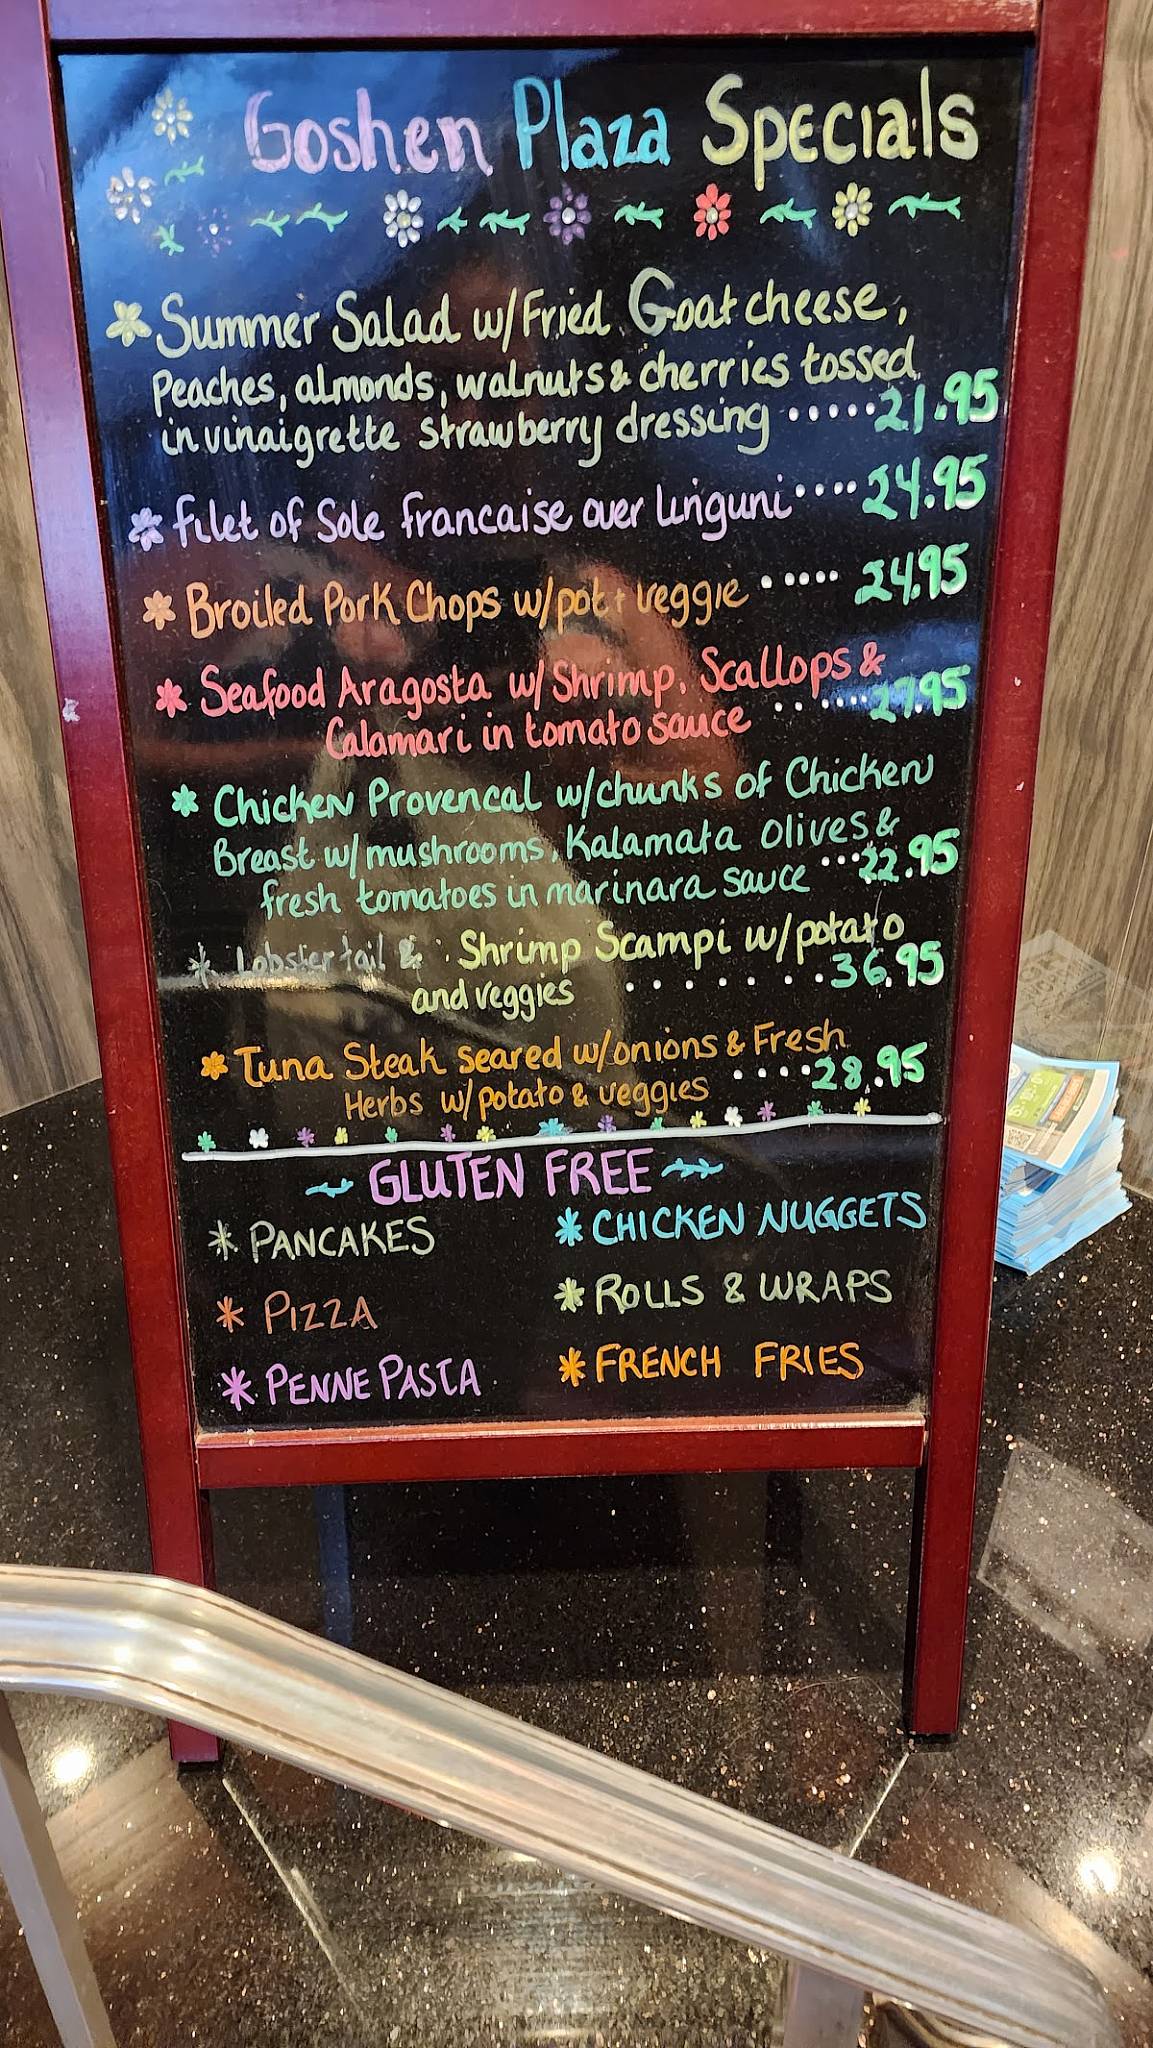 Goshen Plaza Specials
Summer Salad w/Fried Goat cheese,
Peaches, almonds, walnuts & cherries tossed
in vinaigrette strawberry dressing ..... 21.95
Filet of Sole francaise over linguni .... 24.95
Broiled Pork Chops w/pot + veggie ..... 24.95
Seafood Aragosta w/Shrimp, Scallops &
Calamari in tomato sauce ..... 27.95
Chicken Provencal w/chunks of Chicken
Breast w/mushrooms, Kalamata Olives &
fresh tomatoes in marinara sauce ... 22.95
Lobster tail & Shrimp Scampi w/potato
and veggies ...... 36.95
Tuna Steak seared w/onions & Fresh
Herbs w/potato & veggies .... 28.95
GLUTEN FREE
PANCAKES
CHICKEN NUGGETS
PIZZA
ROLLS & WRAPS
PENNE PASTA
FRENCH FRIES